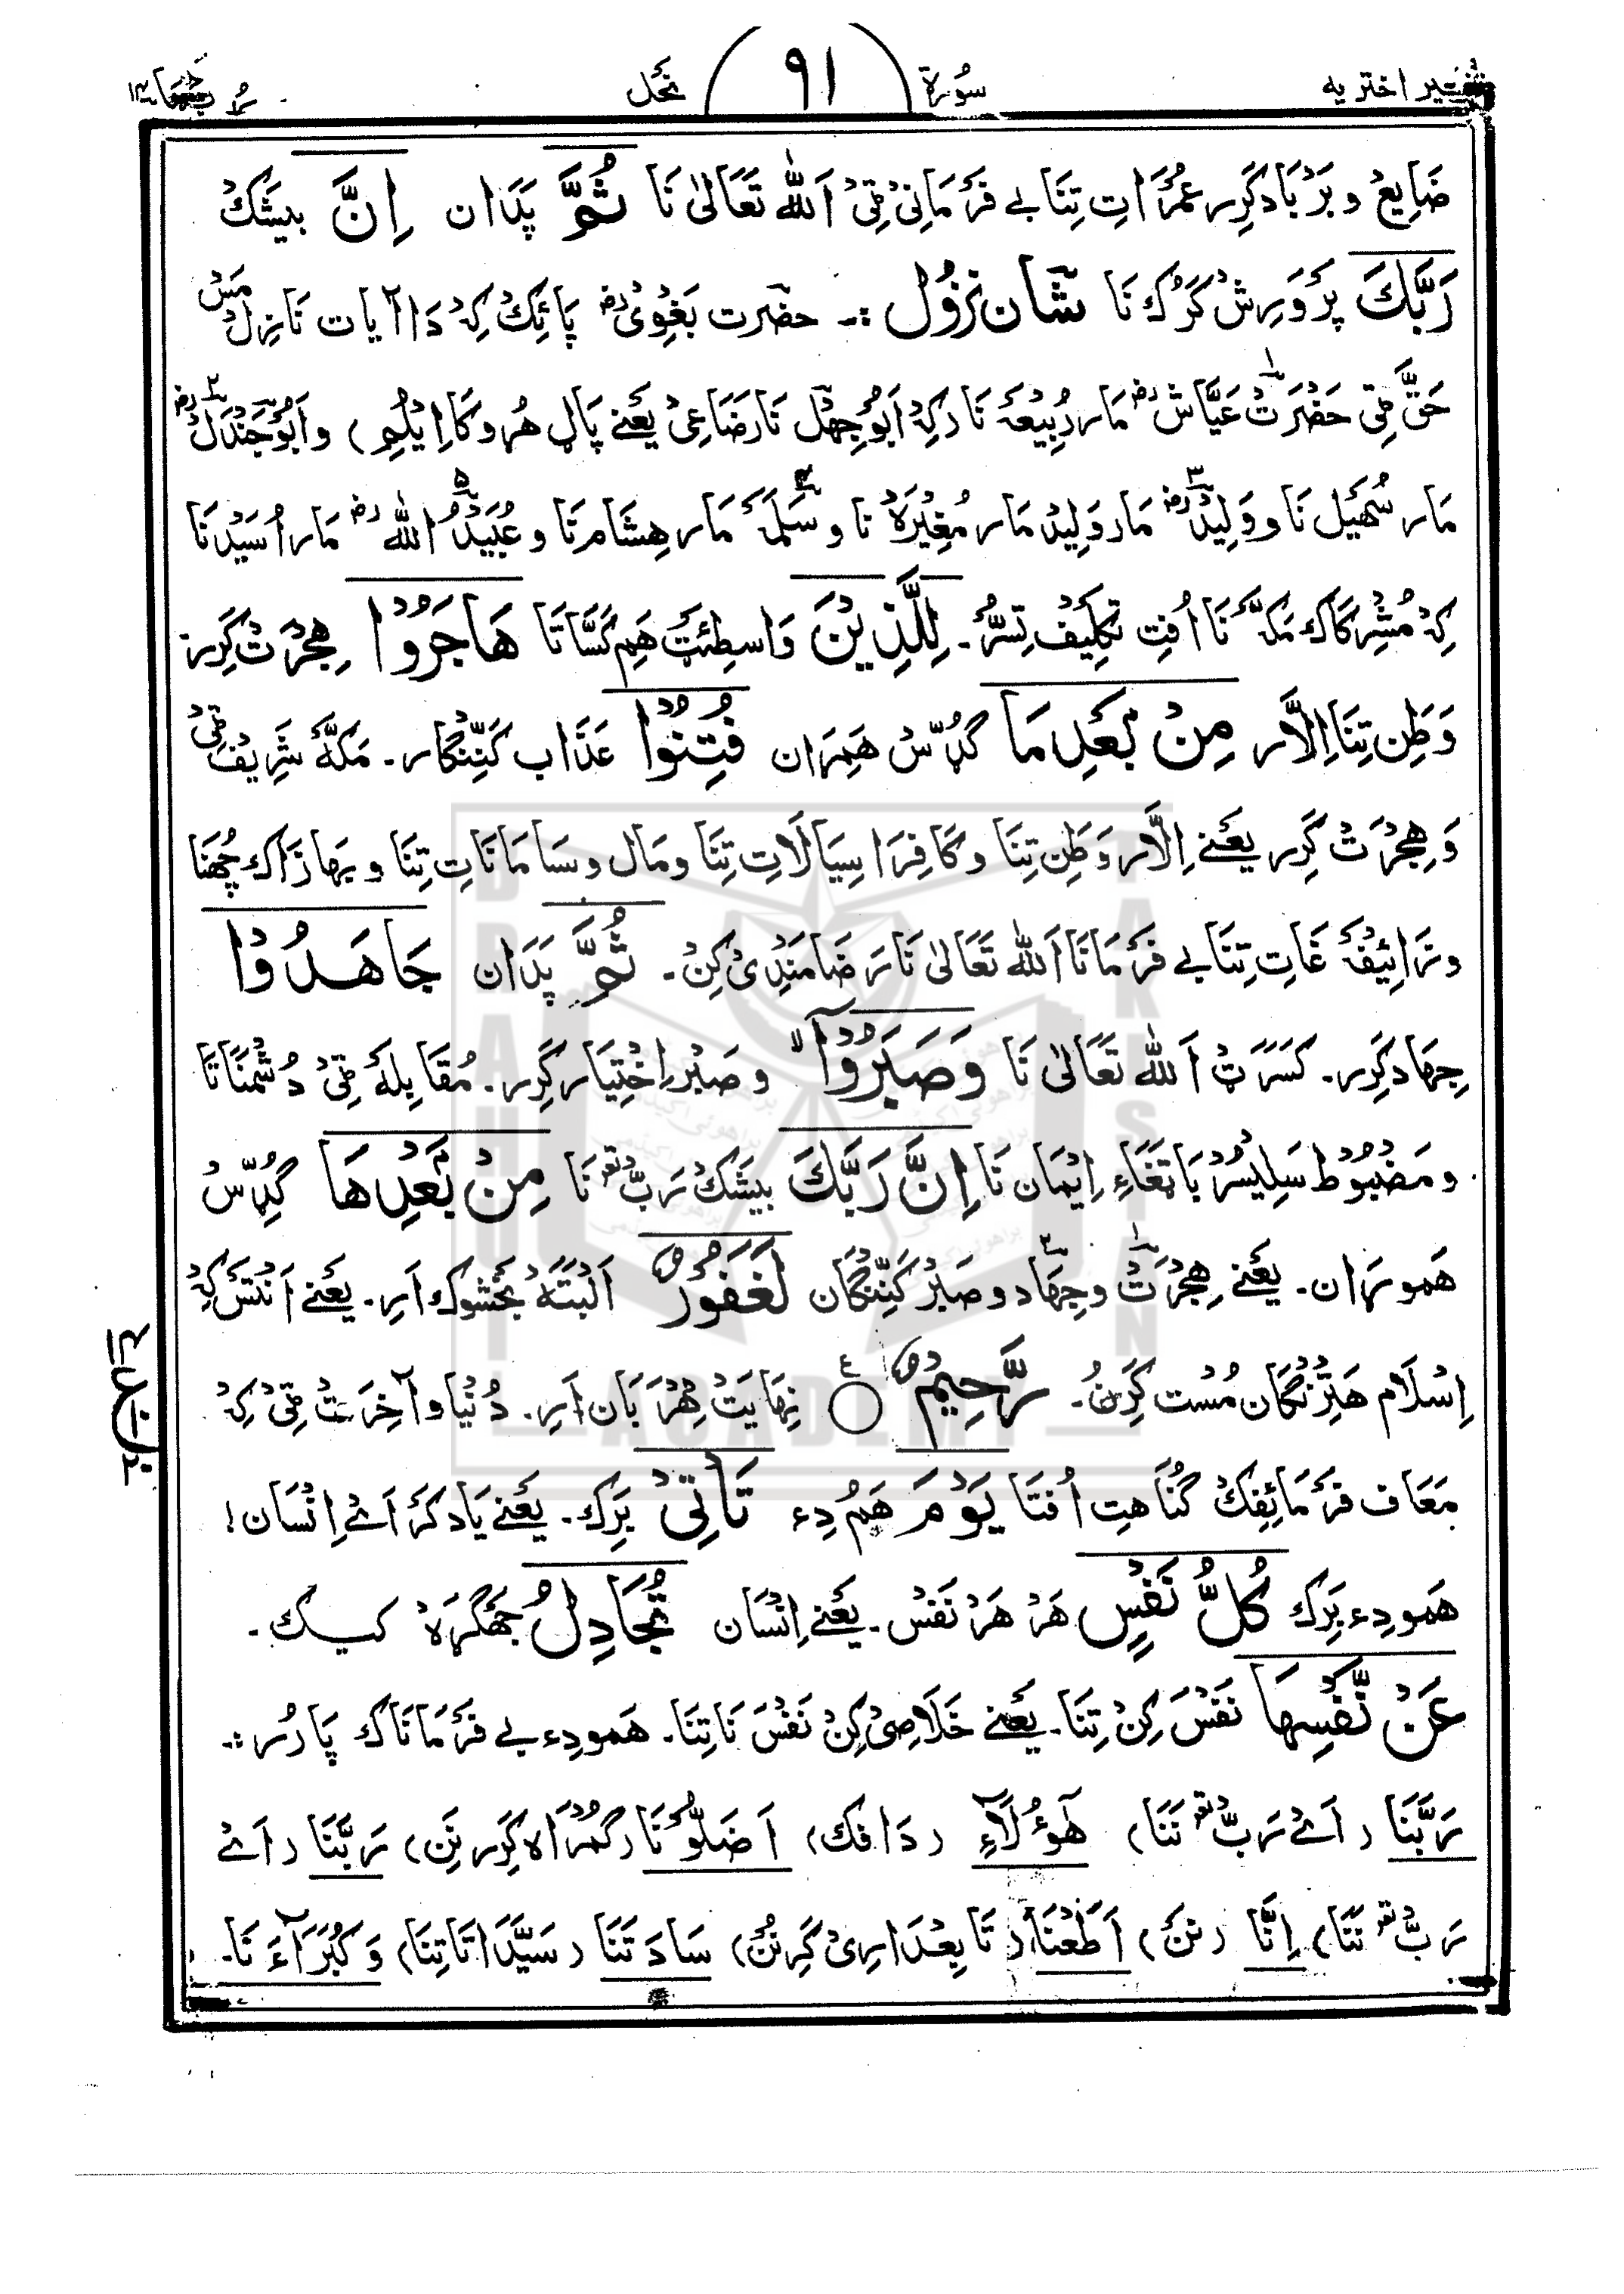 تفسیر اختریه سُورة ٩١ نَحل رُبَمَا ١٤
ضَایِعْ و بَرْبَاد کَرِیر عُمْرَاتِ تِنَا بے فَرْمَانِیْ ٹِیْ اَللّٰه تَعَالیٰ نَا ثُمَّ پَدَان اِنَّ بیشَکْ
رَبَّكَ پَرْوَرِشْ کَرُکْ نَا شَان نزُوْل :۔ حضرت بَغْوِیْ رض پَائِکْ کِہْ دَا آیات نَازِلْ مَسُ
حَقْ ٹِی حَضْرَتْ عَیَّاش رض مَار رَبِیْعَہ نَا رکِہْ اَبُوجِهْل نَا رَضَاعِیْ یَعْنے پَالِ هُروکَا اِیْلُم) و اَبُوجَنْدَلْ رض
مَار سُهَیل نَا و وَلِیدْ رض مَار وَلِیدْ مَار مُغِیْرَہْ نَا و سَلَمَہ مَار هِشَام نَا و عُبَیْدُ اللّٰه رض مَار اُسَیْد نَا
کِہْ مُشْرِکَاک مَکَّہ نَا اُفتِ تکلِیْف تِسُّر۔ لِلَّذِیْنَ وَاسِطَئِٹْ هَم کَسَّاتَا هَاجَرُوْا هِجْرَتْ کَرِیر
وَطَنِ تِنَا اِلَّار مِنْۢ بَعْدِ مَا گُدْسْ هَمِرَان فُتِنُوْا عَذَاب کَنِّنْگار۔ مَکَّہ شَرِیف ٹِیْ
وَ هِجْرَتْ کَرِیر یَعْنے اِلَّار وَطَنِ تِنَا و کَافِرَا سِیَالَاتِ تِنَا و مَال و سَامَانَاتِ تِنَا و بھازَاک چُهنَا
و زَائِیْفَہ غَاتِ تِنَا بے فَرْمَانَا اَللّٰه تَعَالیٰ نَا رَضَامَنْدِیْ کِنْ۔ ثُمَّ پَدَان جَاهَدُوْا
جِهَاد کَرِیر۔ کَسَرَٹْ اَللّٰه تَعَالیٰ نَا وَصَبَرُوْۤا و صَبْر اِخْتِیَار کَرِیر۔ مُقَابِلَہ ٹِیْ دُشْمَنَاتَا
و مَضْبُوْط سَلِیْسُر بَا تَغَاءِ اِیْمَان نَا اِنَّ رَبَّكَ بیشَکْ رَبّ نَا مِنْۢ بَعْدِهَا گُدْسْ
هَمورَان۔ یَعْنے هِجْرَتْ و جِهَاد و صَبْر کَنِّنْگان لَغَفُوْرٌ اَلْبَتَّہ بَخْشُوك اَرِ۔ یَعْنے اَنْتَس کِہْ
اِسْلَام هَتِنْگان مُست کَرِنُ۔ رَّحِیْمٌ نِهَایَتْ مِهْرَبَان اَرِ۔ دُنْیَا و آخِرَتْ ٹِیْ کِہْ
مَعَاف فَرْمَائِفِکْ گُنَاهتِ اُفتَا یَوْمَ هَم دِء تَاْتِیْ بَرِك۔ یَعْنے یَاد کَرْ اَے اِنْسَان!
هَمودِء بَرِك کُلُّ نَفْسٍ هَرْ هَرْ نَفْس۔ یَعْنے اِنْسَان تُجَادِلُ جَهگَرَہ کیك۔
عَنْ نَّفْسِهَا نَفْسَ کِنْ تِنَا۔ یَعْنے خَلَاصِیْ کِنْ نَفْسَ نَا تِنَا۔ هَمودِء بے فَرْمَانَاك پَارُر :۔
رَبَّنَا (اَے رَبّ نَنَا) هٰۤؤُلَآءِ (دَافك) اَضَلُّوْنَا (گمْرَاہ کَرِیر نَن) رَبَّنَا (اَے
رَبّ نَنَا) اِنَّا (نَن) اَطَعْنَا (تَابِعْدَارِیْ کَرِن) سَادَتَنَا (سَیَّدَاتَا تِنَا) وَکُبَرَآءَنَا۔